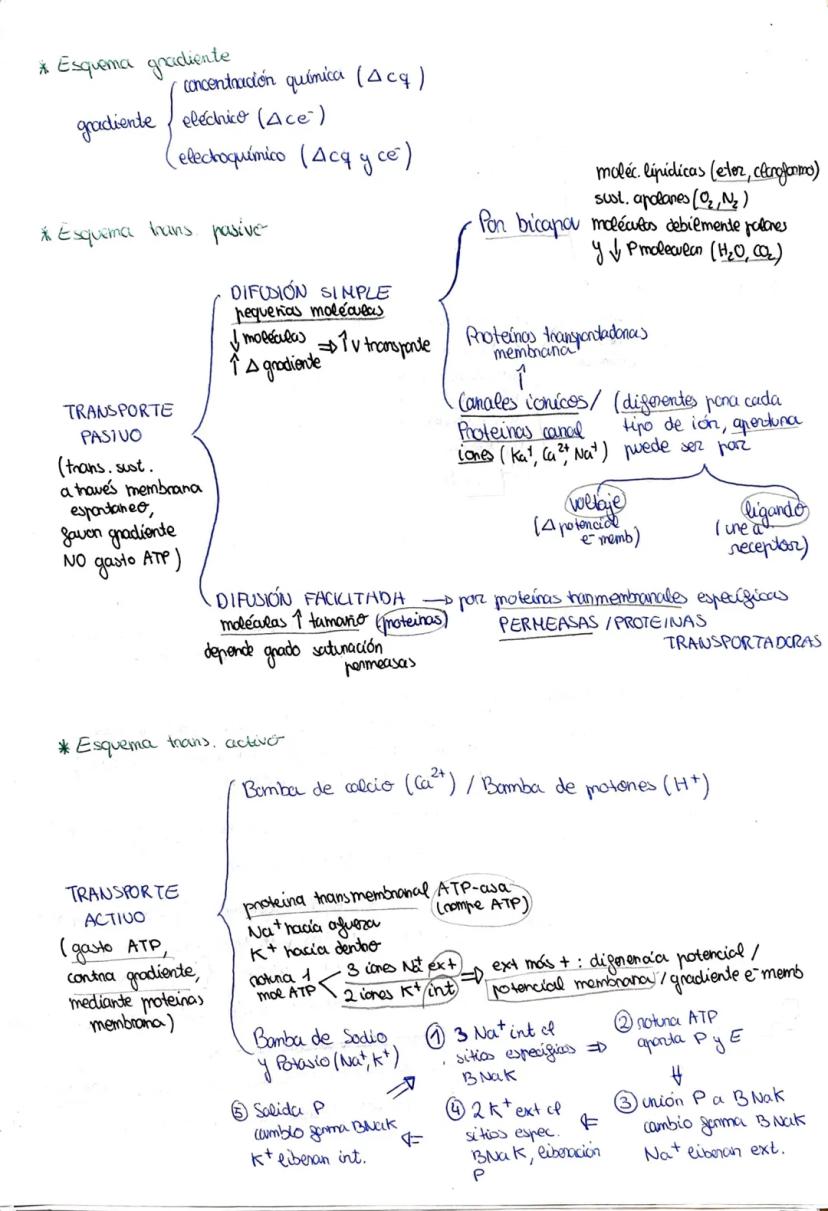 * Esquema gradiente
gradiente
concentración química (Δcq)
eléctrico (Δce⁻)
electroquímico (Δcq y ce⁻)
* Esquema trans. pasivo
TRANSPORTE
PASIVO
(trans. sust.
a través membrana
espontaneo,
favor gradiente
NO gasto ATP)
DIFUSIÓN SIMPLE
pequeñas moléculas
↓ moléculas
↑ Δ gradiente
⇒ ↑ v transporte
Por bicapa
moléc. lipídicas (eter, cloroformo)
sust. apolares (O₂, N₂)
moléculas debilmente polares
y ↓ Pmolecular (H₂O, CO₂)
Proteínas transportadoras
membrana
↑
Canales iónicos/
Proteinas canal
iones (Ka⁺, Ca²⁺, Na⁺)
(diferentes para cada
tipo de ión, apertura
puede ser por
voltaje
(Δ potencial
e⁻ memb)
ligando
(une a
receptor)
DIFUSIÓN FACILITADA → por proteínas tranmembranales específicas
moléculas ↑ tamaño (proteinas)
depende grado saturación
permeasas
PERMEASAS / PROTEINAS
TRANSPORTADORAS
* Esquema trans. activo
TRANSPORTE
ACTIVO
(gasto ATP,
contra gradiente,
mediante proteínas
membrana)
Bomba de calcio (Ca²⁺) / Bomba de protones (H⁺)
proteína transmembranal ATP-asa
(rompe ATP)
Na⁺ hacía afuera
K⁺ hacia dentro
rotura 1
mol ATP
3 iones Na⁺ ext
2 iones K⁺ int
⇒ ext más + : diferencia potencial /
potencial membrana / gradiente e⁻ memb
Bomba de Sodio
y Potasio (Na⁺, K⁺)
① 3 Na⁺ int cf
sitios específicos ⇒
BNaK
② rotura ATP
aporta P y E
⇓
③ unión P a BNaK
cambio forma BNaK
Na⁺ liberan ext.
⇐
④ 2 K⁺ ext cf
sitios espec.
BNaK, liberación
P
⇐
⑤ Salida P
cambio forma BNaK
K⁺ liberan int.
⇒